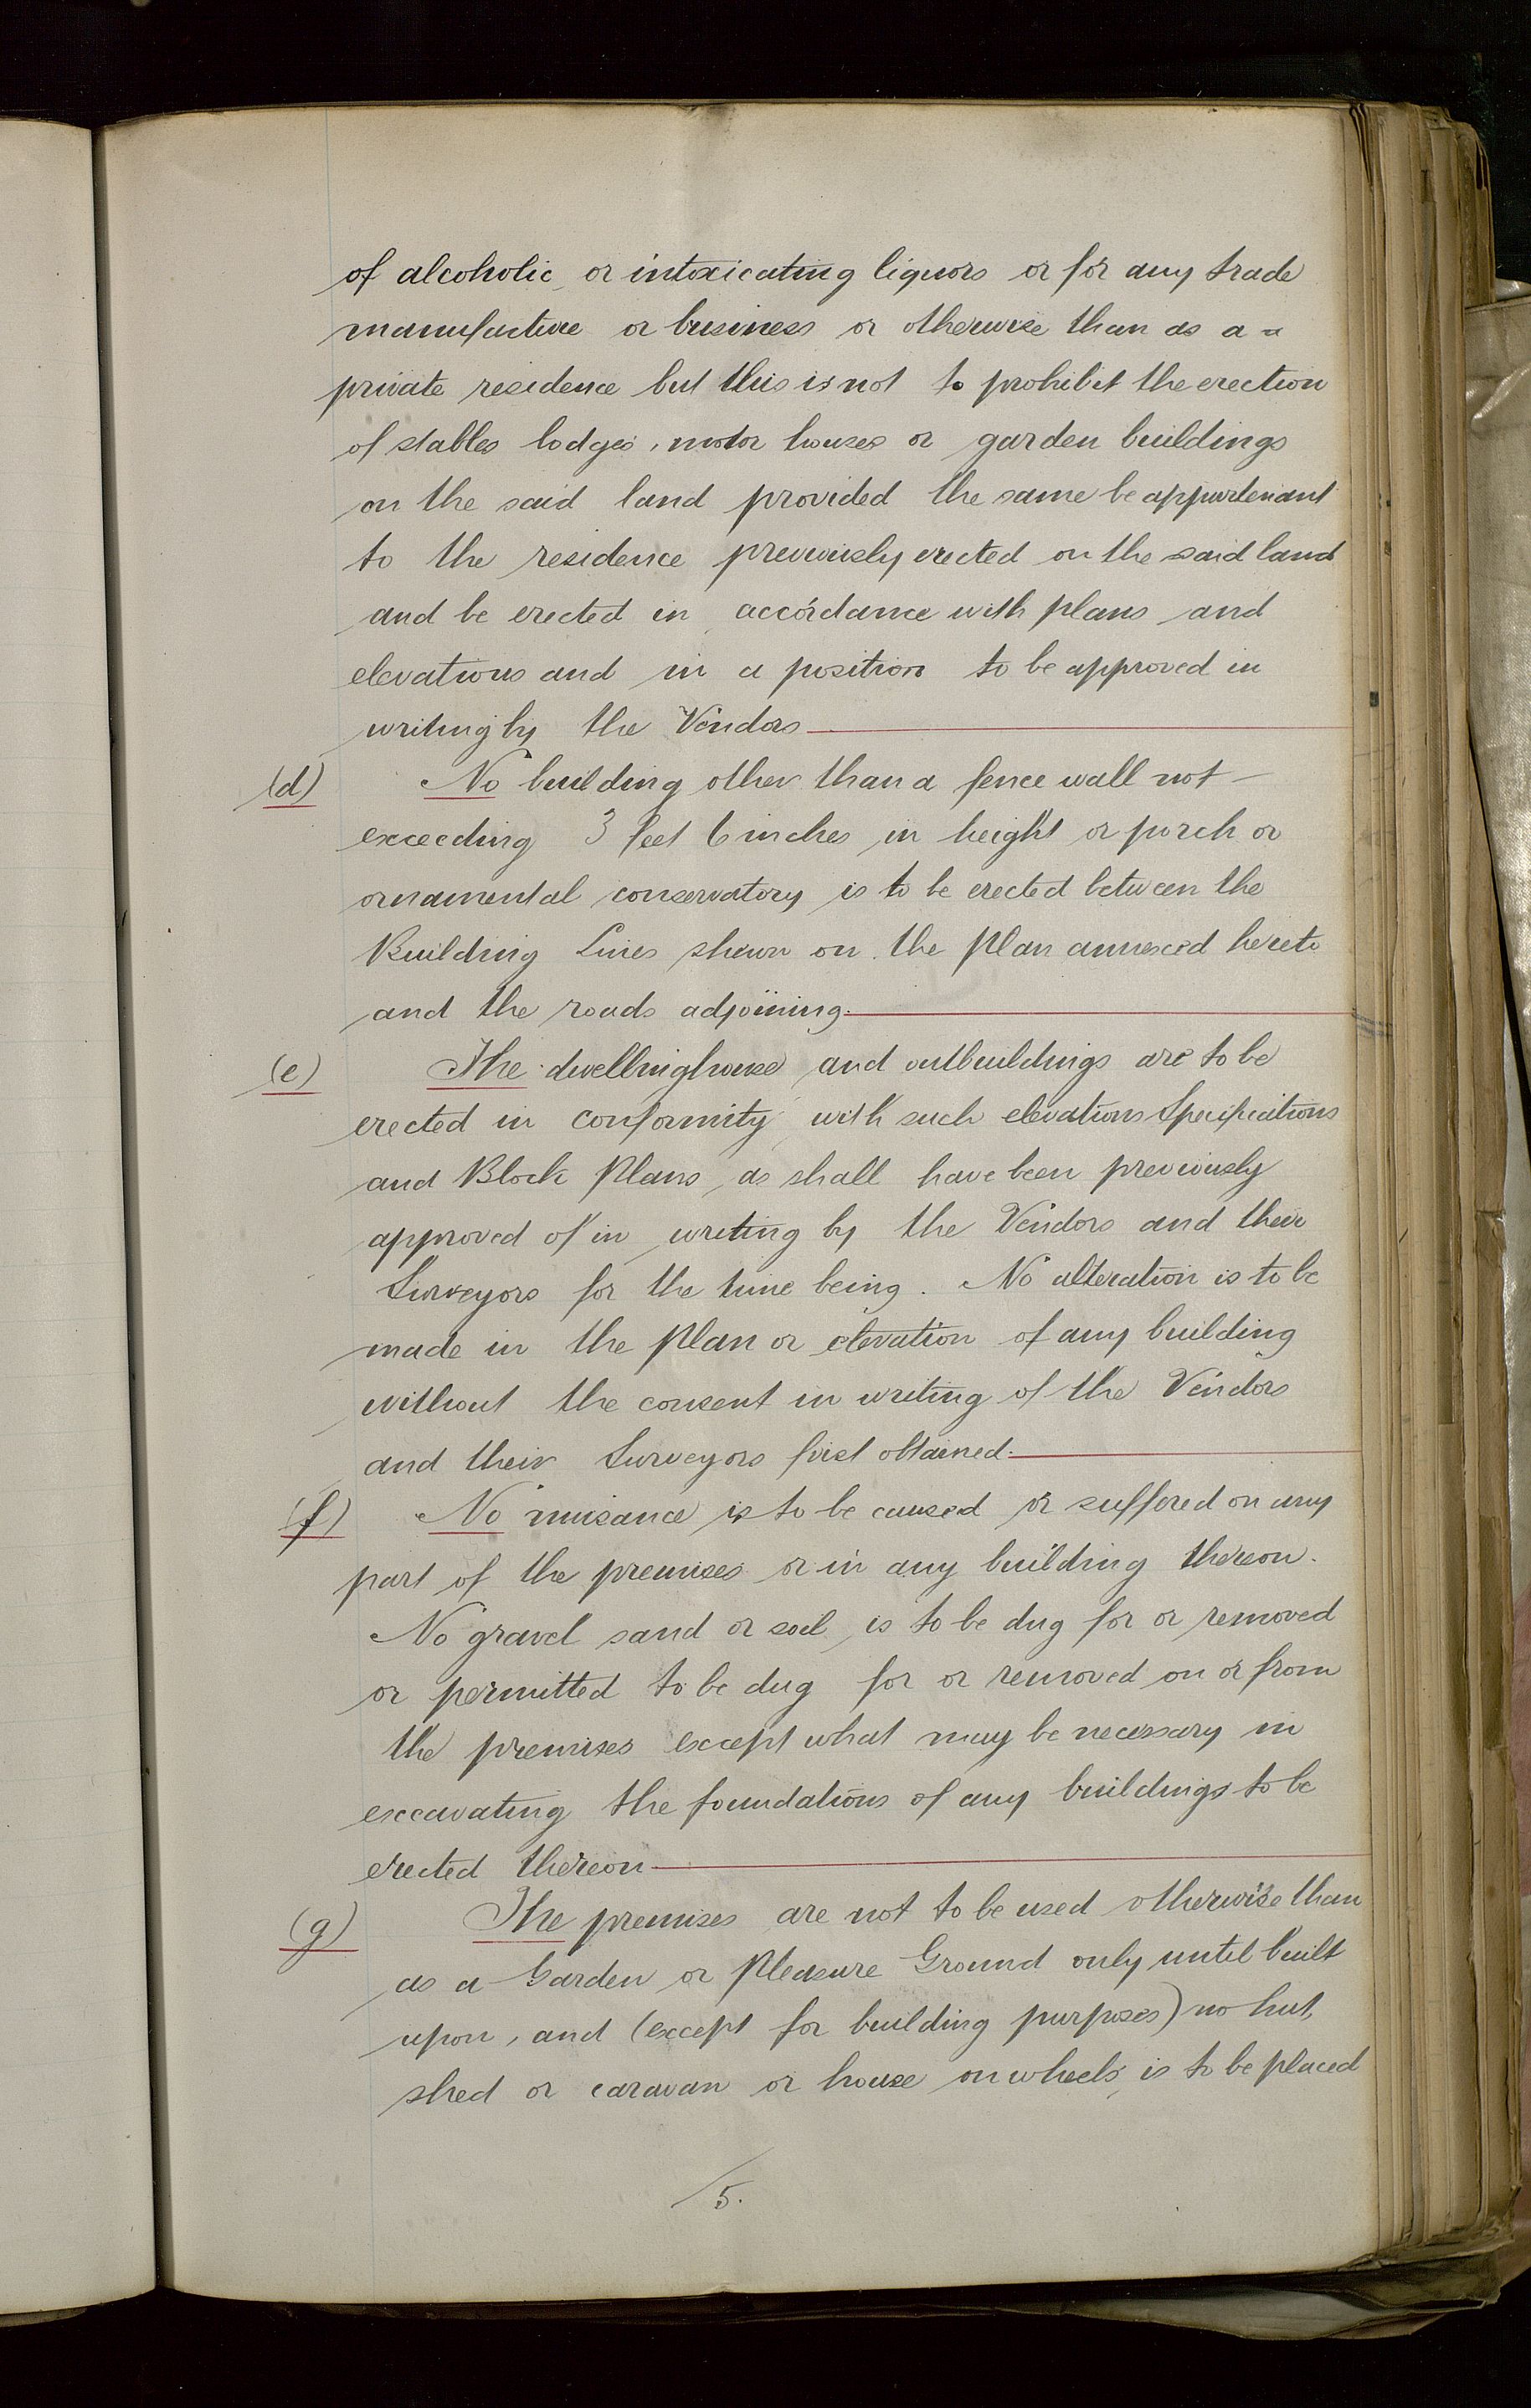 of alcoholic or intoxicating liquors or for any trade
manufacture or business or otherwise than as a =
private residence but this is not to prohibit the erection
of stables lodges, motor houses or garden buildings
on the said land provided the same be appurtenant
to the residence previously erected on the said land
and be erected in accordance with plans and
elevations and in a position to be approved in
writing by the Vendors
(d) No building other than a fence wall not —
exceeding 3 feet 6 inches in height or porch or
ornamental conservatory is to be erected between the
Building Lines shewn on the Plan annexed hereto
and the roads adjoining.
(e) The dwellinghouse and outbuildings are to be
erected in conformity with such elevations Specifications
and Block Plans as shall have been previously
approved of in writing by the Vendors and their
Surveyors for the time being. No alteration is to be
made in the Plan or elevation of any building
without the consent in writing of the Vendors
and their Surveyors first obtained.
(f) No nuisance is to be caused or suffered on any
part of the premises or in any building thereon.
No gravel sand or soil is to be dug for or removed
or permitted to be dug for or removed on or from
the premises except what may be necessary in
excavating the foundations of any buildings to be
erected thereon
(g) The premises are not to be used otherwise than
as a Garden or Pleasure Ground only until built
upon, and (except for building purposes) no hut,
shed or caravan or house on wheels is to be placed
5.